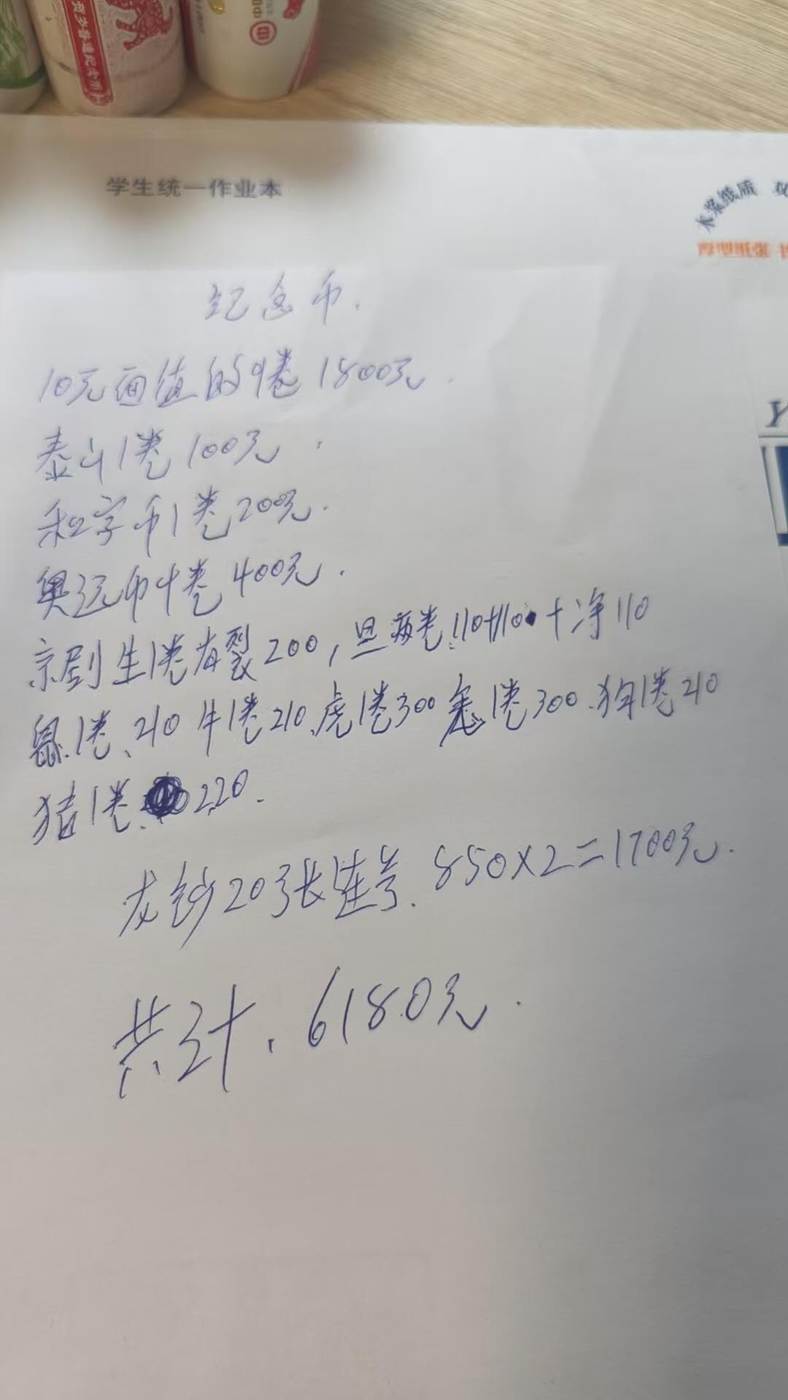 学生统一作业本
木浆纸质
厚型纸张
纪念币.
10元面值的9卷1800元.
泰山1卷100元.
和字币1卷200元.
奥运币4卷400元.
京剧生1卷有裂200,旦两卷110+110+净110
鼠1卷、210牛1卷210、虎1卷300兔1卷300.狗1卷210
猪1卷、220.
龙钞20张连号.850×2=1700元.
共计.6180元.